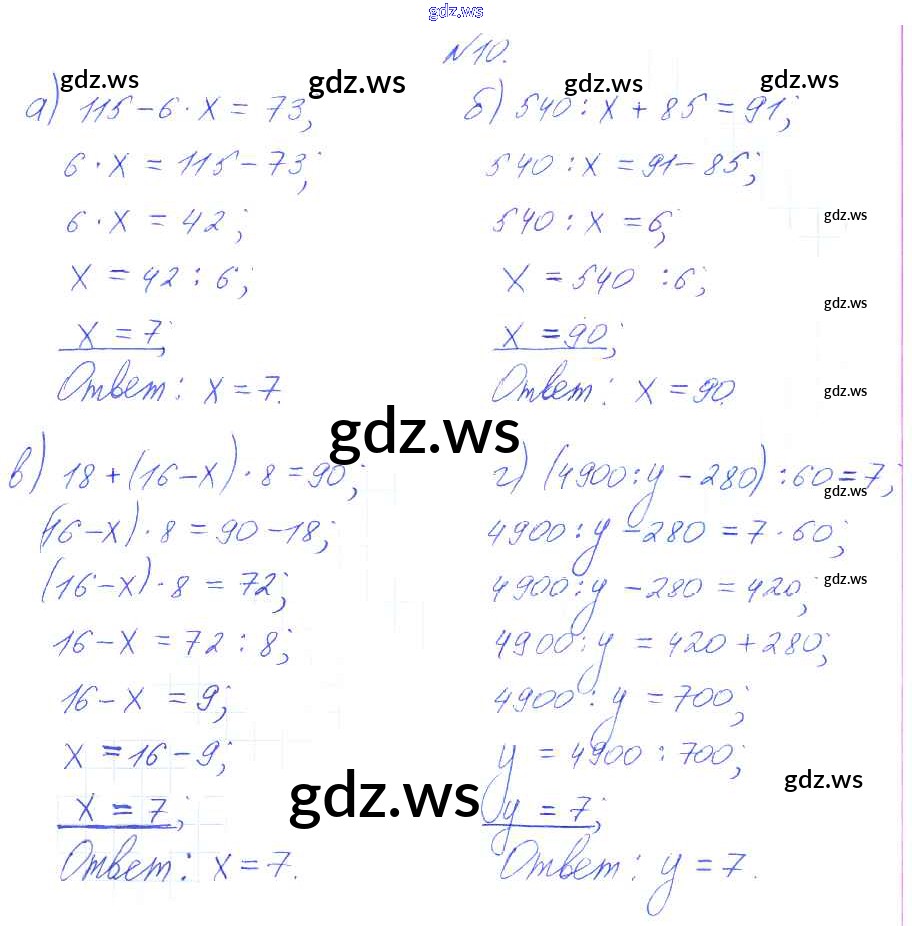 gdz.ws
№10.
gdz.ws gdz.ws gdz.ws gdz.ws
а) 115-6·x=73;
6·x=115-73;
6·x=42;
x=42:6;
x=7;
Ответ: x=7.
б) 540:x+85=91;
540:x=91-85;
540:x=6;
gdz.ws
x=540:6;
gdz.ws
x=90;
Ответ: x=90.
gdz.ws
gdz.ws
в) 18+(16-x)·8=90;
(16-x)·8=90-18;
(16-x)·8=72;
16-x=72:8;
16-x=9;
x=16-9;
gdz.ws
x=7;
Ответ: x=7.
г) (4900:y-280):60=7;
gdz.ws
4900:y-280=7·60;
4900:y-280=420;
gdz.ws
4900:y=420+280;
4900:y=700;
y=4900:700;
gdz.ws
y=7;
Ответ: y=7.